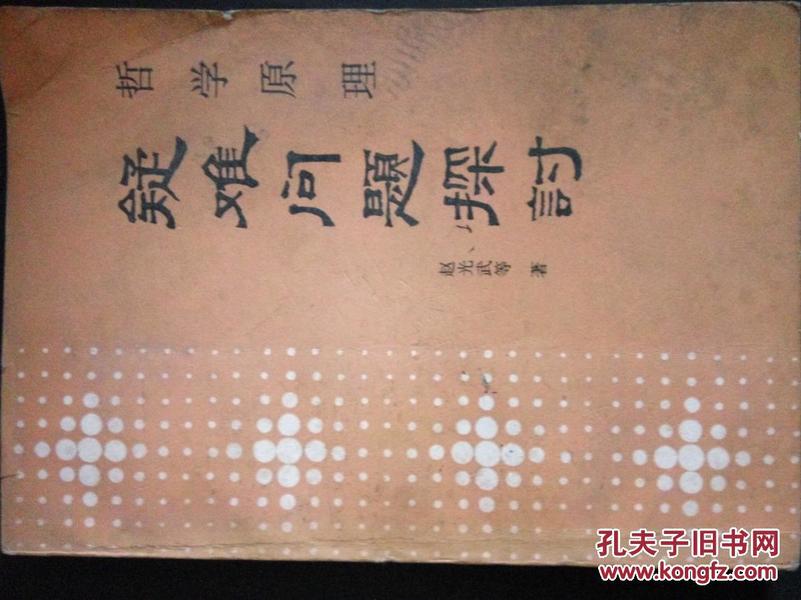 哲学原理
疑难问题探討
赵光武等 著
孔夫子旧书网
www.kongfz.com